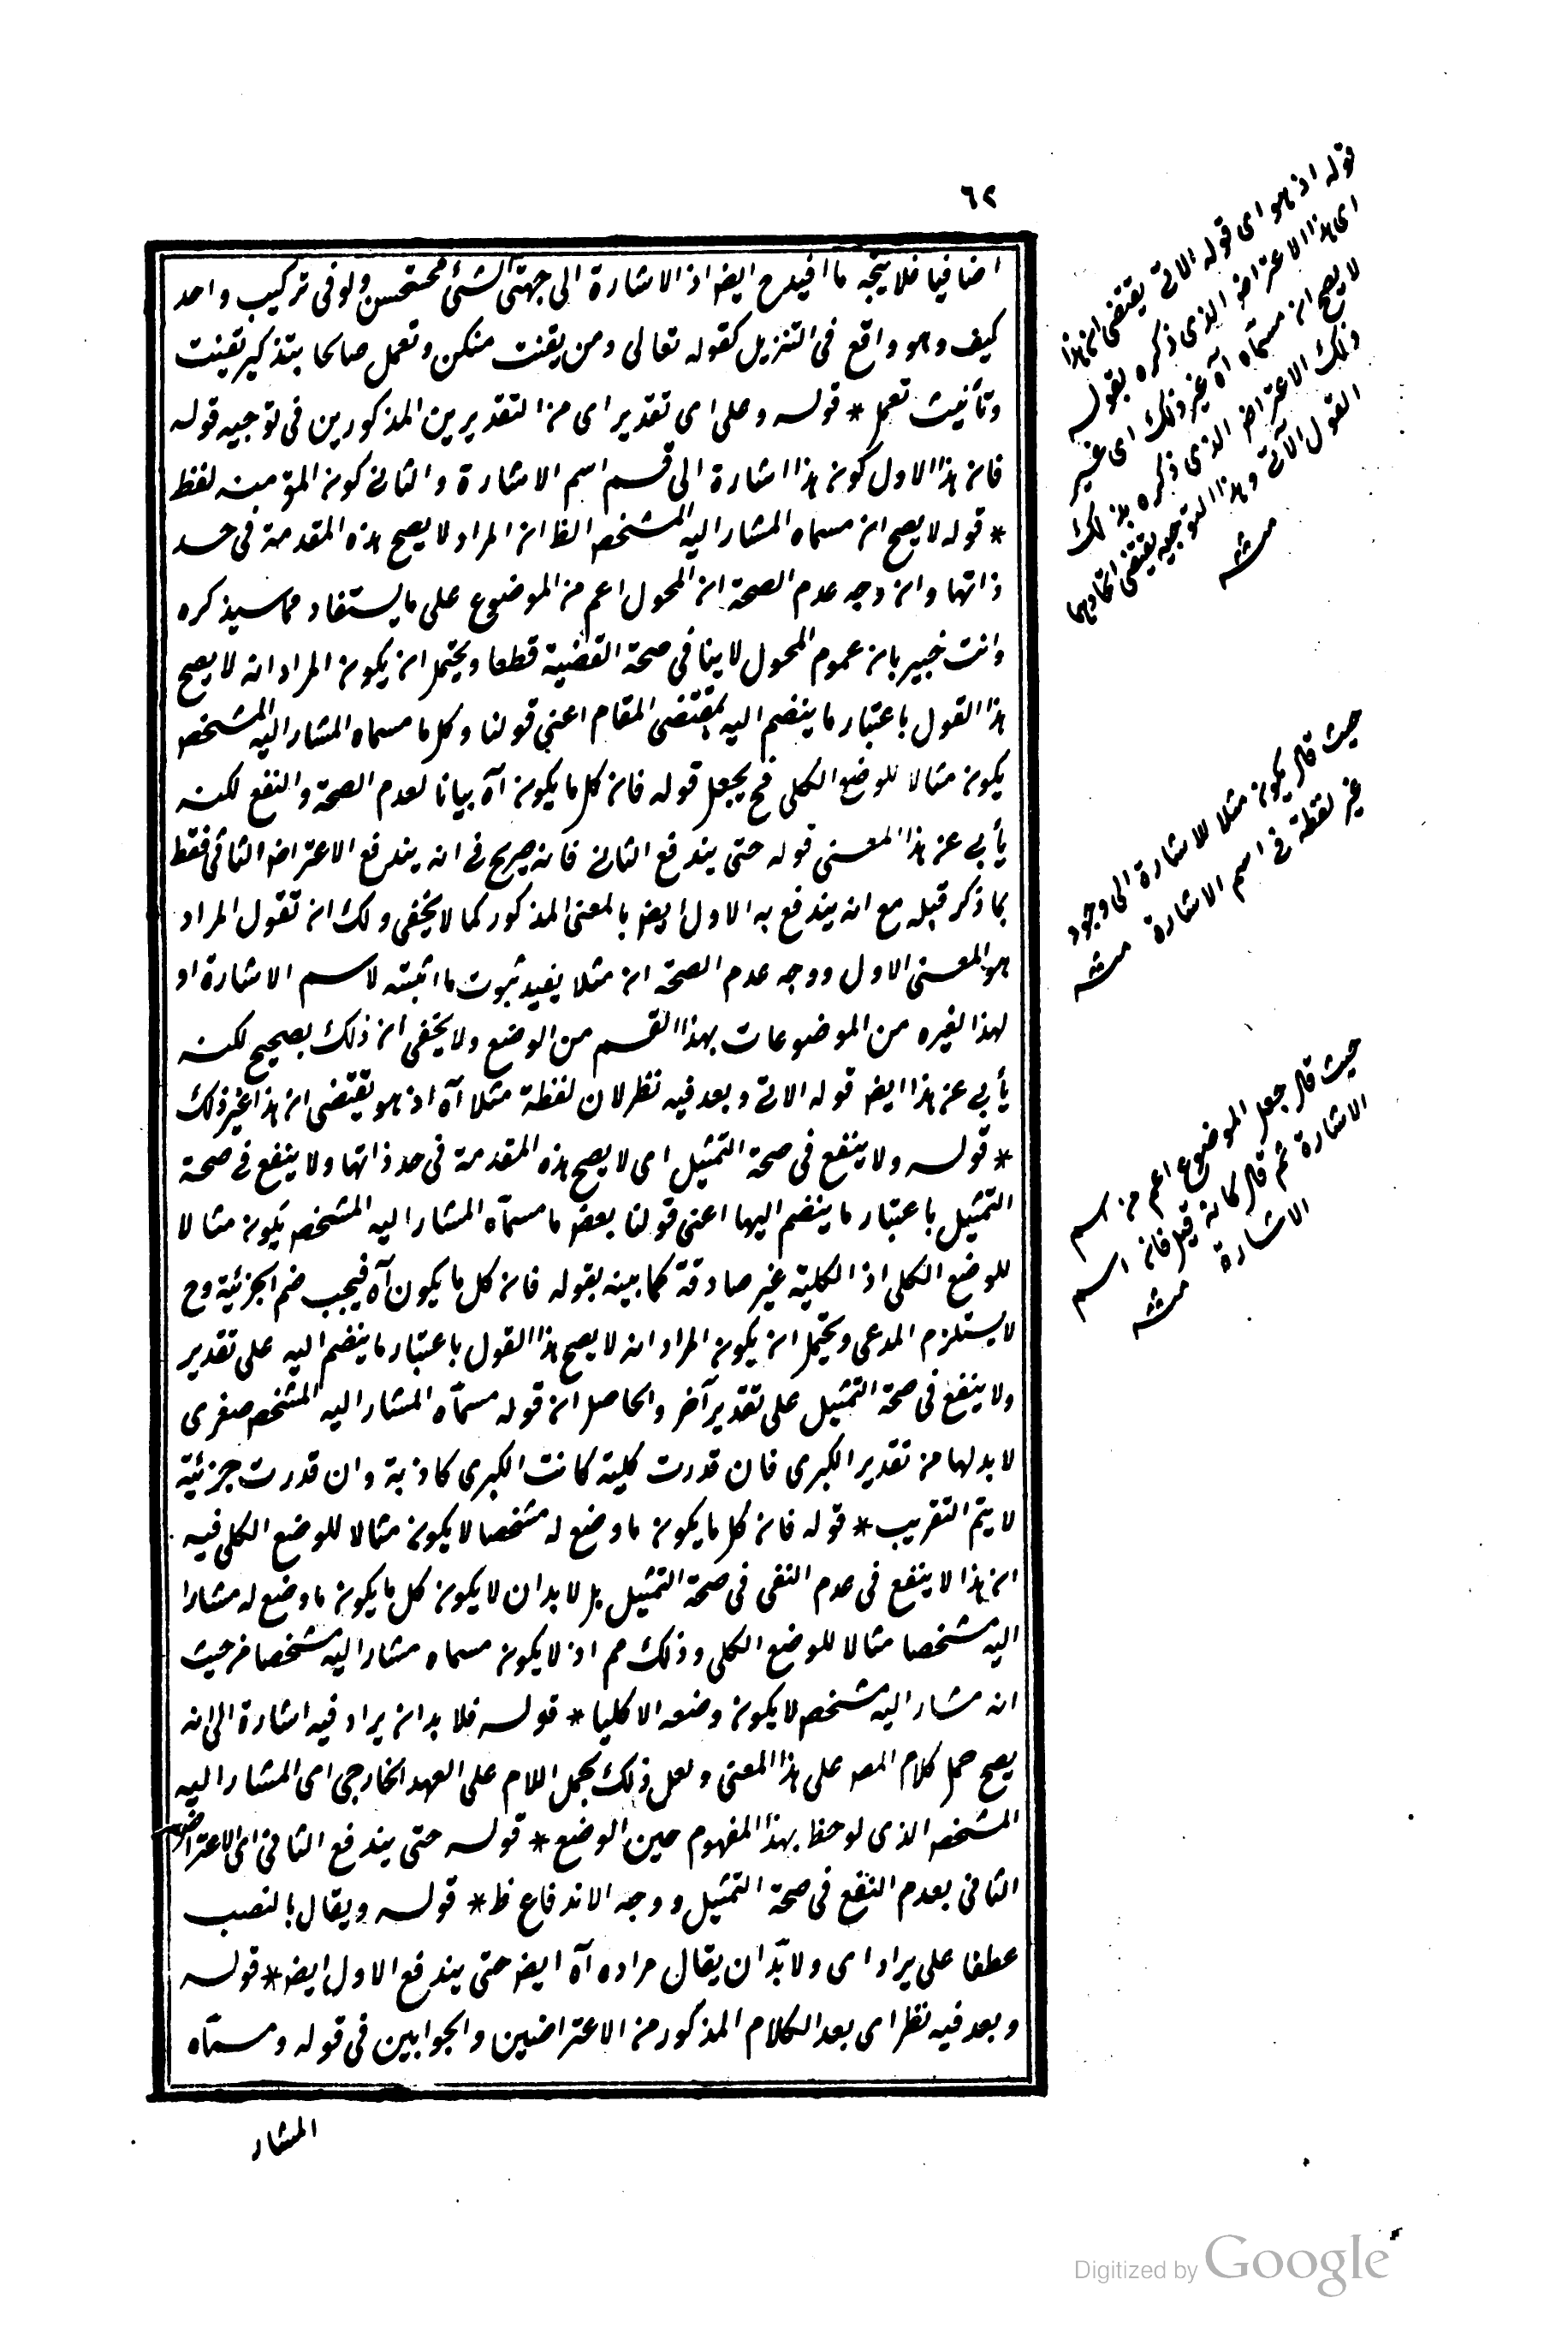 ٦٢
اضافيا فلا يتجه ما افيد ح ايض اذ الاشارة الى جهتى الشئ مستحسن ولو فى تركيب واحد
كيف وهو واقع فى التنزيل كقوله تعالى ومن يقنت منكن وتعمل صالحا بتذكير يقنت
وتأنيث تعمل * قوله وعلى اى تقدير اى من التقديرين المذكورين فى توجيه قوله
فان هذا الاول كون هذا اشارة الى قسم اسم الاشارة والثانى كون المؤ منه لفظ
* قوله لا يصح ان مسماه المشار اليه المشخص الظ ان المراد لا يصح هذه المقدمة فى حد
ذاتها وان وجه عدم الصحة ان المحمول اعم من الموضوع على ما يستفاد مما سيذكره
وانت خبير بان عموم المحمول لا ينافى صحة القضية قطعا ويحتمل ان يكون المراد انه لا يصح
هذا القول باعتبار ما ينضم اليه بمقتضى المقام اعنى قولنا وكل ما مسماه المشار اليه المشخص
يكون مثالا للوضع الكلى فح يجعل قوله فان كل ما يكون آه بيانا لعدم الصحة والنفع لكنه
يأبى عن هذا المعنى قوله حتى يندفع الثانى فانه صريح فى انه يندفع الاعتراض الثانى فقط
بما ذكر قبله مع انه يندفع به الاول ايض بالمعنى المذكور كما لا يخفى ولك ان تقول المراد
هو المعنى الاول ووجه عدم الصحة ان مثلا يفيد ثبوت ما اثبته لاسم الاشارة او
لهذا لغيره من الموضوعات بهذا القسم من الوضع ولا يخفى ان ذلك بصحيح لكنه
يأبى عن هذا ايض قوله الاتى وبعد فيه نظر لان لفظة مثلا آه اذ هو يقتضى ان هذا غير ذلك
* قوله ولا ينفع فى صحة التمثيل اى لا يصح هذه المقدمة فى حد ذاتها ولا ينفع فى صحة
التمثيل باعتبار ما ينضم اليها اعنى قولنا بعض ما مسماه المشار اليه المشخص يكون مثالا
للوضع الكلى اذ الكلية غير صادقة كما بينه بقوله فان كل ما يكون آه فيجب ضم الجزئية وح
لا يستلزم المدعى ويحتمل ان يكون المراد انه لا يصح هذا القول باعتبار ما ينضم اليه على تقدير
ولا ينفع فى صحة التمثيل على تقدير آخر والحاصل ان قوله مسماه المشار اليه المشخص صغرى
لا بد لها من تقدير الكبرى فان قدرت كلية كانت الكبرى كاذبة وان قدرت جزئية
لا يتم التقريب * قوله فان كل ما يكون ما وضع له مشخصا لا يكون مثالا للوضع الكلى فيه
ان هذا لا ينفع فى عدم النفى فى صحة التمثيل بل لا بد ان لا يكون كل ما يكون ما وضع له مشارا
اليه مشخصا مثالا للوضع الكلى وذلك مم اذ لا يكون مسماه مشار اليه مشخصا من حيث
انه مشار اليه مشخص لا يكون وضعه الا كليا * قوله فلا بد ان يراد فيه اشارة الى انه
يصح حمل كلام المص على هذا المعنى ولعل ذلك بحمل اللام على العهد الخارجى اى المشار اليه
المشخص الذى لوحظ بهذا المفهوم حين الوضع * قوله حتى يندفع الثانى اى الاعتراض
الثانى بعدم النفع فى صحة التمثيل ووجه الاندفاع ظ * قوله ويقال بالنصب
عطفا على يراد اى ولا بد ان يقال مراده آه ايض حتى يندفع الاول ايض * قوله
وبعد فيه نظر اى بعد الكلام المذكور من الاعتراضين والجوابين فى قوله ومسماه
المشار
قوله اذ هو اى قوله الاتى يقتضى ان هذا
اى هذا الاعتراض الذى ذكره بقوله
لا يصح ان مسماه آه غير ذلك اى غير
ذلك الاعتراض الذى ذكره بذلك
القول الآتى وهذا التوجيه يقتضى اتحادهما
منه
حيث قال يكون مثلا للاشارة الى وجود
غير لفظة فى اسم الاشارة منه
حيث قال جعل الموضوع اعم من اسم
الاشارة ثم قال كانه قيل فان اسم
الاشارة منه
Digitized by Google